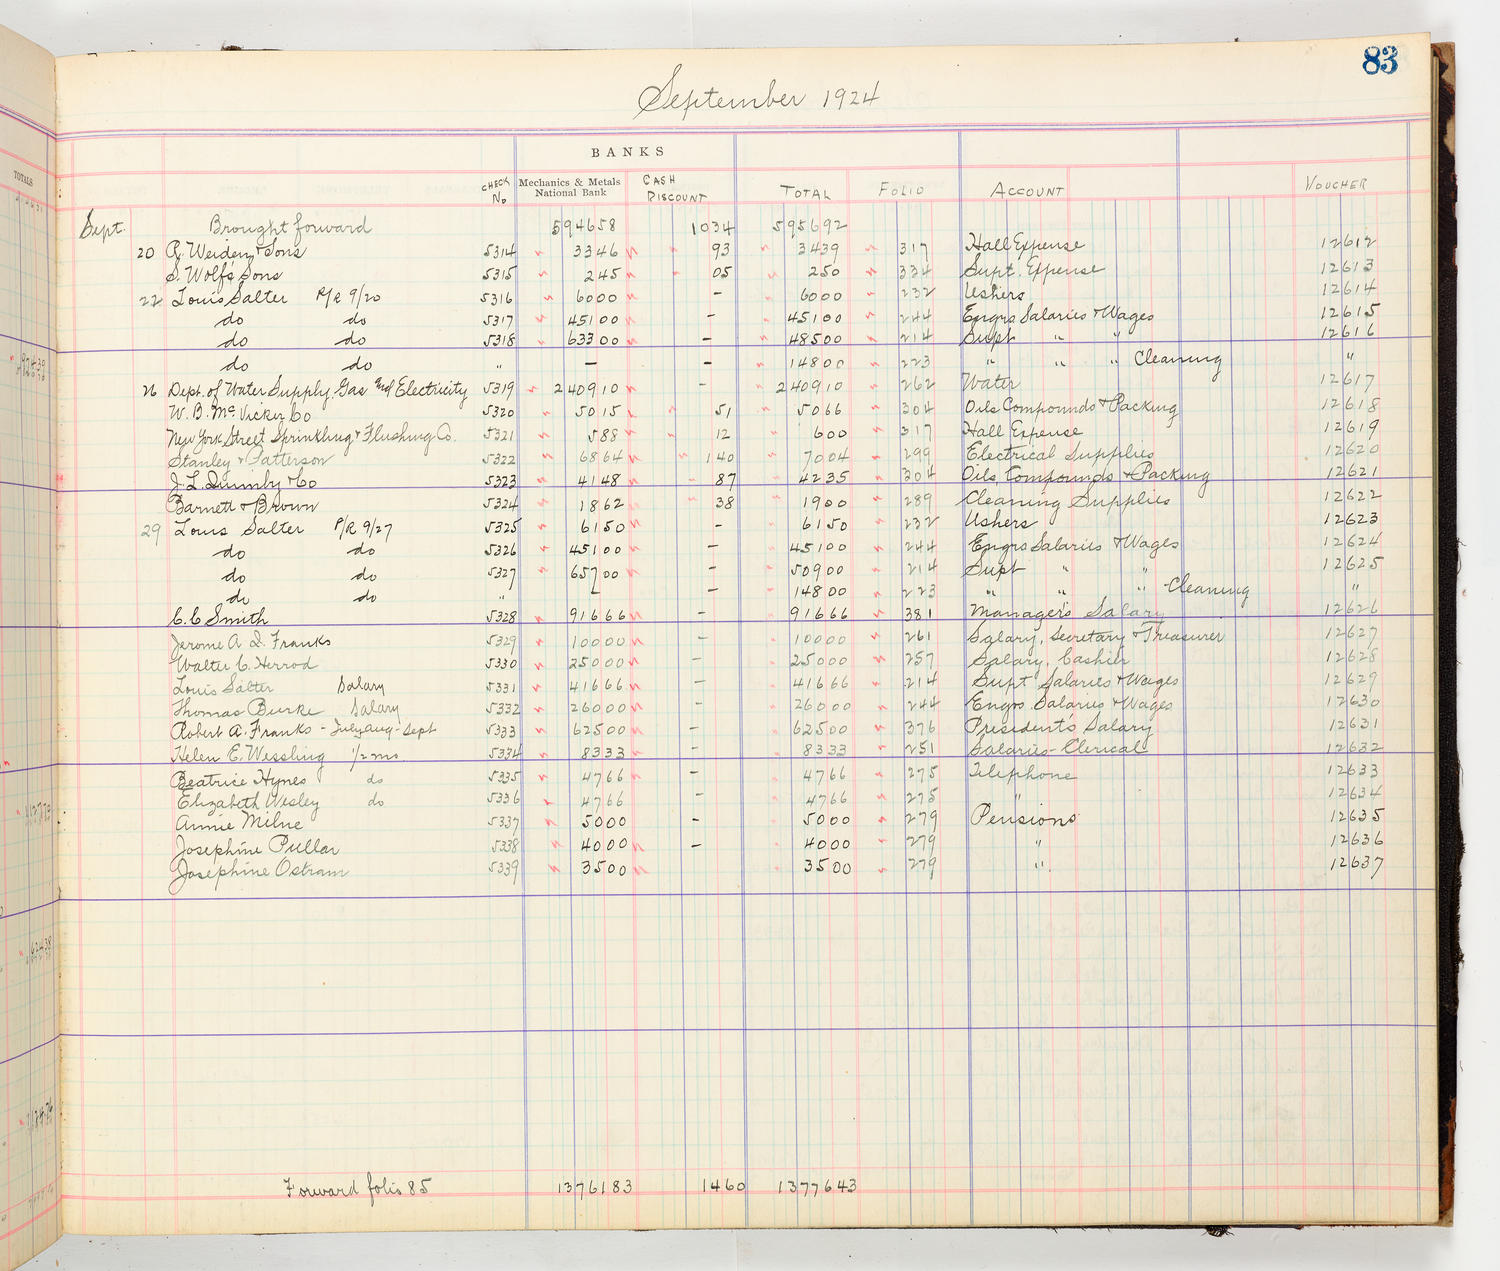 83
September 1924
TOTALS
BANKS
CHECK No Mechanics & Metals National Bank CASH DISCOUNT TOTAL FOLIO ACCOUNT VOUCHER
Sept. Brought forward 594658 1034 595692
20 R. Weiden & Sons 5314 " 3346 " 93 " 3439 " 317 Hall Expense 12612
S. Wolf's Sons 5315 " 245 " 05 " 250 " 334 Supt. Expense 12613
22 Louis Salter P/R 9/20 5316 " 6000 - " 6000 " 232 Ushers 12614
do do 5317 " 45100 - " 45100 " 244 Engrs Salaries & Wages 12615
do do 5318 " 63300 - " 48500 " 214 Supt " " 12616
do do " - - " 14800 " 223 " " " Cleaning "
26 Dept. of Water Supply, Gas and Electricity 5319 " 240910 - " 240910 " 262 Water 12617
W. B. McVicker Co 5320 " 5015 " 51 " 5066 " 304 Oils Compounds & Packing 12618
New York Street Sprinkling & Flushing Co. 5321 " 588 " 12 " 600 " 317 Hall Expense 12619
Stanley & Patterson 5322 " 6864 " 140 " 7004 " 299 Electrical Supplies 12620
J. L. Quimby & Co 5323 " 4148 " 87 " 4235 " 304 Oils, Compounds & Packing 12621
Barnett & Brown 5324 " 1862 " 38 " 1900 " 289 Cleaning Supplies 12622
29 Louis Salter P/R 9/27 5325 " 6150 - " 6150 " 232 Ushers 12623
do do 5326 " 45100 - " 45100 " 244 Engrs Salaries & Wages 12624
do do 5327 " 65700 - " 50900 " 214 Supt " " 12625
do do " - - " 14800 " 223 " " " Cleaning "
C. C. Smith 5328 " 91666 - " 91666 " 381 Manager's Salary 12626
Jerome A. Q. Franks 5329 " 10000 - " 10000 " 261 Salary, Secretary & Treasurer 12627
Walter C. Herrod 5330 " 25000 - " 25000 " 257 Salary, Cashier 12628
Louis Salter Salary 5331 " 41666 - " 41666 " 214 Supt Salaries & Wages 12629
Thomas Burke Salary 5332 " 26000 - " 26000 " 244 Engrs. Salaries & Wages 12630
Robert A. Franks - July, Aug - Sept 5333 " 62500 - " 62500 " 376 President's Salary 12631
Helen E. Wessling 1/2 mo 5334 " 8333 - " 8333 " 251 Salaries - Clerical 12632
Beatrice Hynes do 5335 " 4766 - " 4766 " 275 Telephone 12633
Elizabeth Wesley do 5336 " 4766 - " 4766 " 275 " 12634
Annie Milne 5337 " 5000 - " 5000 " 279 Pensions 12635
Josephine Pullar 5338 " 4000 - " 4000 " 279 " 12636
Josephine Ostram 5339 " 3500 " 3500 " 279 " 12637
Forward folio 85 1376183 1460 1377643